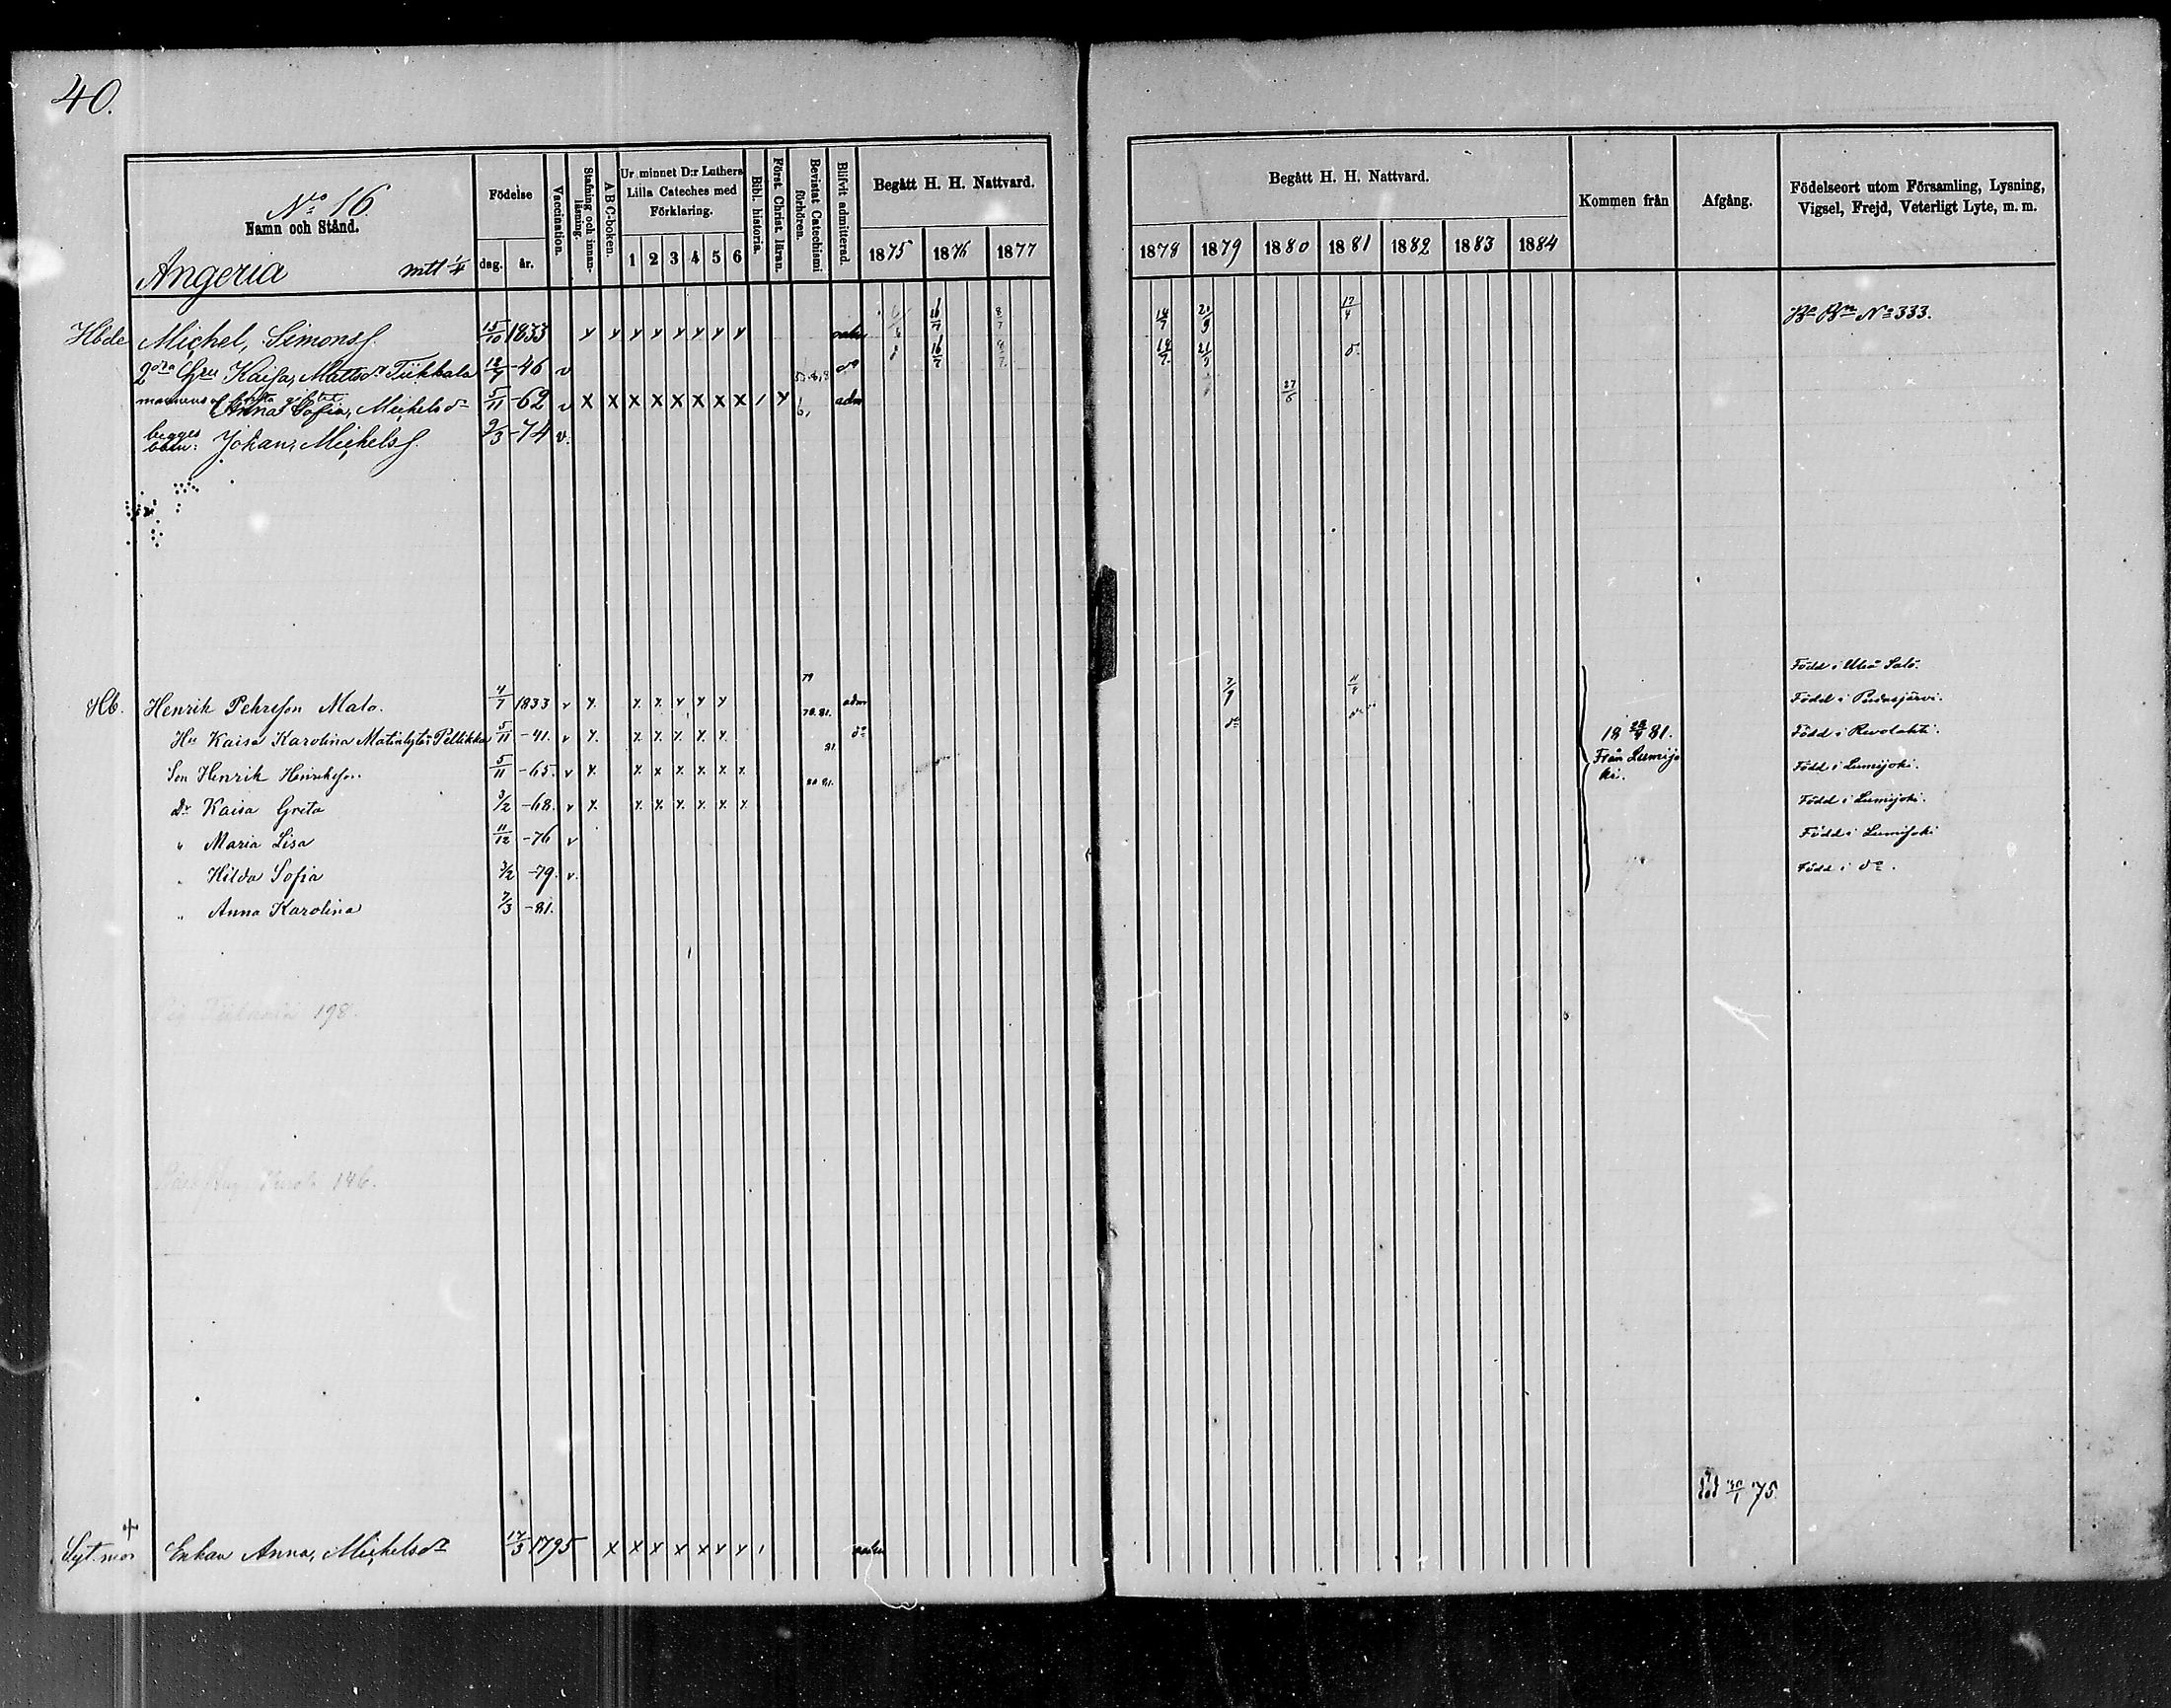 40.
Nro 16.
Namn och Stånd.
Angeria mtl 1/4
Födelse
dag. år.
Vaccination.
Stafning och innanläsning.
A B C-boken.
Ur minnet D:r Luthers Lilla Cateches med Förklaring.
1 2 3 4 5 6
Bibl. historia.
Först. Christ. läran.
Bevistat Catechismi förhören.
Blifvit admitterad.
Begått H. H. Nattvard.
1875 1876 1877
Begått H. H. Nattvard.
1878 1879 1880 1881 1882 1883 1884
Kommen från
Afgång.
Födelseort utom Församling, Lysning, Vigsel, Frejd, Veterligt Lyte, m. m.
Hbde Michel, Simonss. 15/10 1833 x x x x x x x x 16/7 8/7 14/7 21/9 17/4 No 333.
2dra Hru Kaisa, Mattsdr Tikkala 12/7 -46 v do 16/7 8/7 14/7 21/9 d.
mannens Anna Sofia, Michelsdr 5/11 -62 v x x x x x x x x / x adm 27/6
begges barn: Johan, Michelss. 9/3 -74 v.
Född i Uleå Salo.
Hb. Henrik Pehrsson Malo. 4/7 1833 v x. x. x. x x x 79 adm 7/9 11/4 Född i Pudasjärvi.
Hu Kaisa Karolina Matintytär Pellikka 5/11 -41. v x. x. x. x. x. x. 78.81. do do Född i Revolahti.
18 23/4 81. Från Lumijoki.
Son Henrik Henriksson. 5/11 -65. v x. x x x. x. x. x. 81. Född i Lumijoki.
Dr Kaisa Greta 3/2 -68. v x. x. x. x. x. x. x. 80 81. Född i Lumijoki.
" Maria Lisa 11/12 -76 v Född i Lumijoki
" Hilda Sofia 3/2 -79. v. Född i do.
" Anna Karolina 7/3 -81.
198.
146.
död 30/1 75.
+
Syt. mor Enkan Anna, Michelsdr 17/3 1795 x x x x x x x /